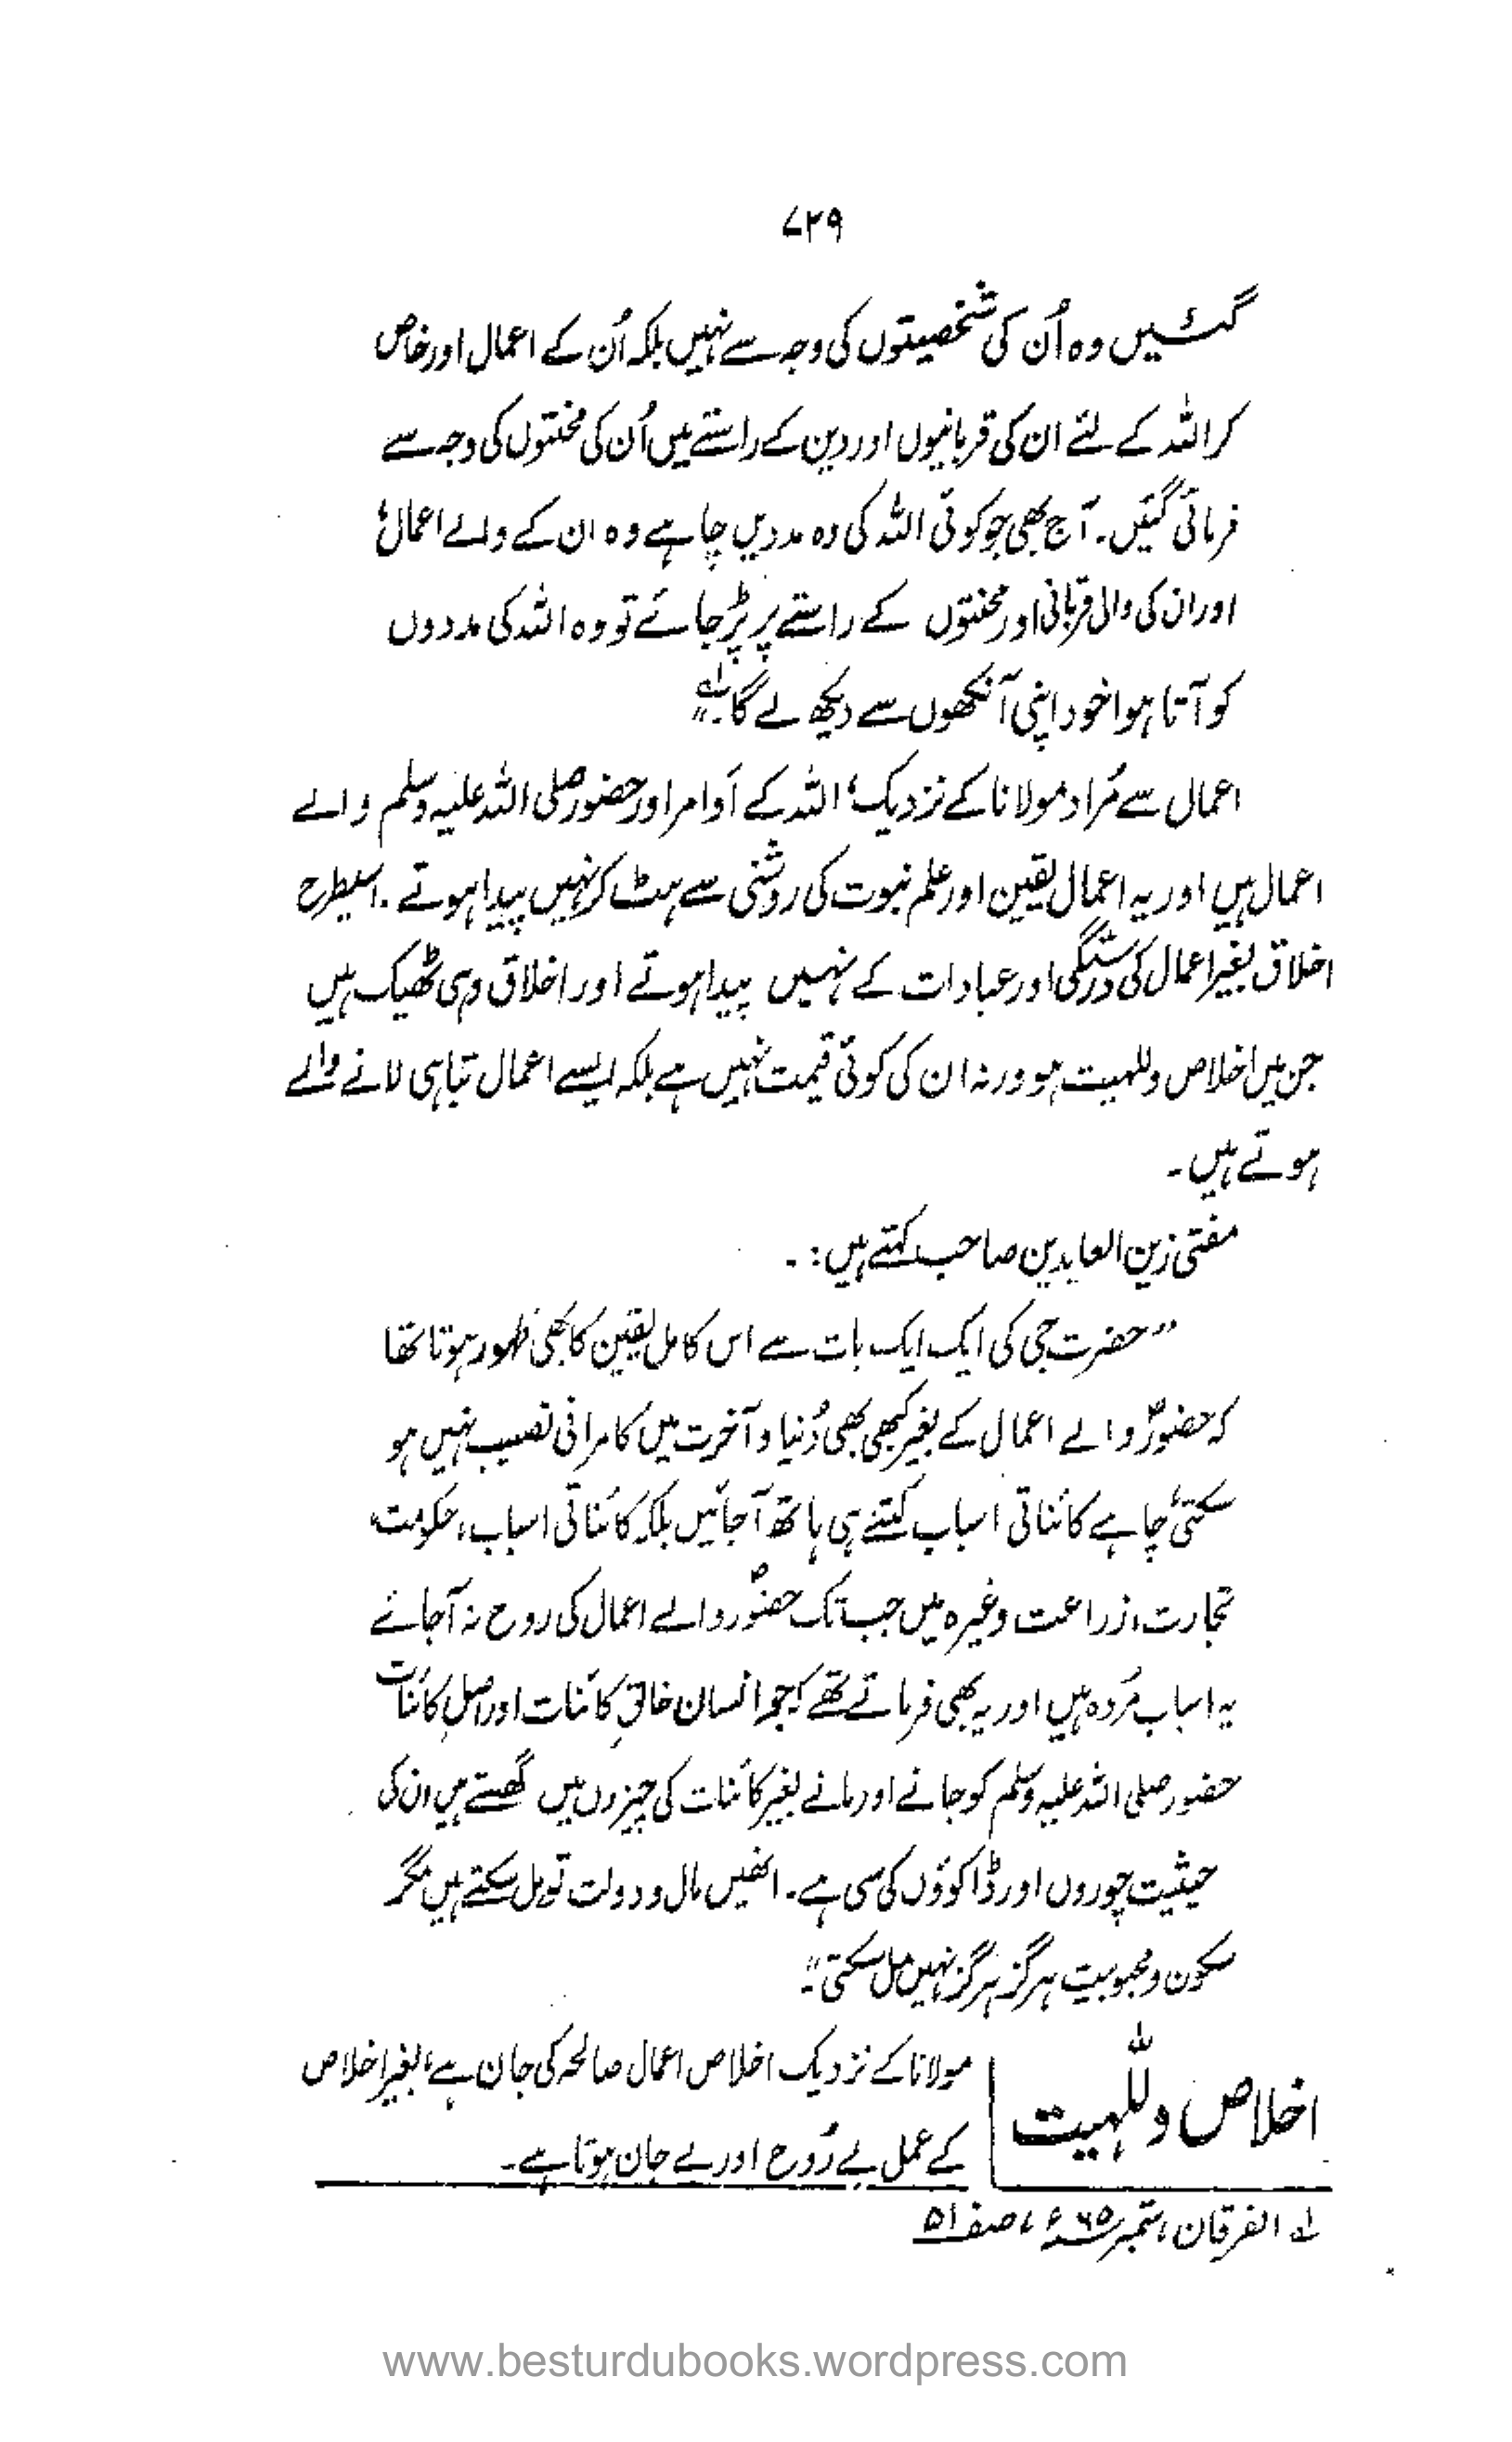 ۷۲۹
گئیں وہ اُن کی شخصیتوں کی وجہ سے نہیں بلکہ اُن کے اعمال اور خاص
کر اللہ کے لئے ان کی قربانیوں اور دین کے راستے میں اُن کی محنتوں کی وجہ سے
فرمائی گئیں۔ آج بھی جو کوئی اللہ کی وہ مددیں چاہے وہ ان کے والے اعمال،
اور ان کی والی قربانی اور محنتوں کے راستے پر پڑ جائے تو وہ اللہ کی مددوں
کو آتا ہوا خود اپنی آنکھوں سے دیکھ لے گا۔" لہ
اعمال سے مُراد مولانا کے نزدیک، اللہ کے اَوامر اور حضور صلی اللہ علیہ وسلم والے
اعمال ہیں اور یہ اعمال یقین اور علم نبوت کی روشنی سے ہٹ کر نہیں پیدا ہوتے۔ اسیطرح
اخلاق بغیر اعمال کی درستگی اور عبادات کے نہیں پیدا ہوتے اور اخلاق وہی ٹھیک ہیں
جن میں اخلاص و للہیت ہو ورنہ ان کی کوئی قیمت نہیں ہے بلکہ ایسے اعمال تباہی لانے والے
ہوتے ہیں۔
مفتی زین العابدین صاحب کہتے ہیں:۔
"حضرت جی کی ایک ایک بات سے اس کامل یقین کا بھی ظہور ہوتا تھا
کہ حضورؐ والے اعمال کے بغیر کبھی بھی دُنیا و آخرت میں کامرانی نصیب نہیں ہو
سکتی، چاہے کائناتی اسباب کتنے ہی ہاتھ آجائیں بلکہ کائناتی اسباب، حکومت،
تجارت، زراعت وغیرہ میں جب تک حضورؐ والے اعمال کی روح نہ آجائے
یہ اسباب مُردہ ہیں اور یہ بھی فرماتے تھے کہ جو انسان خالقِ کائنات اور اصلِ کائنات
حضور صلی اللہ علیہ وسلم کو جانے اور مانے بغیر کائنات کی چیزوں میں گھستے ہیں ان کی
حیثیت چوروں اور ڈاکوؤں کی سی ہے۔ انھیں مال و دولت تو مل سکتے ہیں مگر
سکون و محبوبیت ہرگز ہرگز نہیں مل سکتی۔"
اخلاص و للّٰہیت
مولانا کے نزدیک اخلاص اعمال صالحہ کی جان ہے، بغیر اخلاص
کے عمل بے رُوح اور بے جان ہوتا ہے۔
لہ الفرقان، ستمبر ۶۵ء، صفحہ ۵۱
www.besturdubooks.wordpress.com